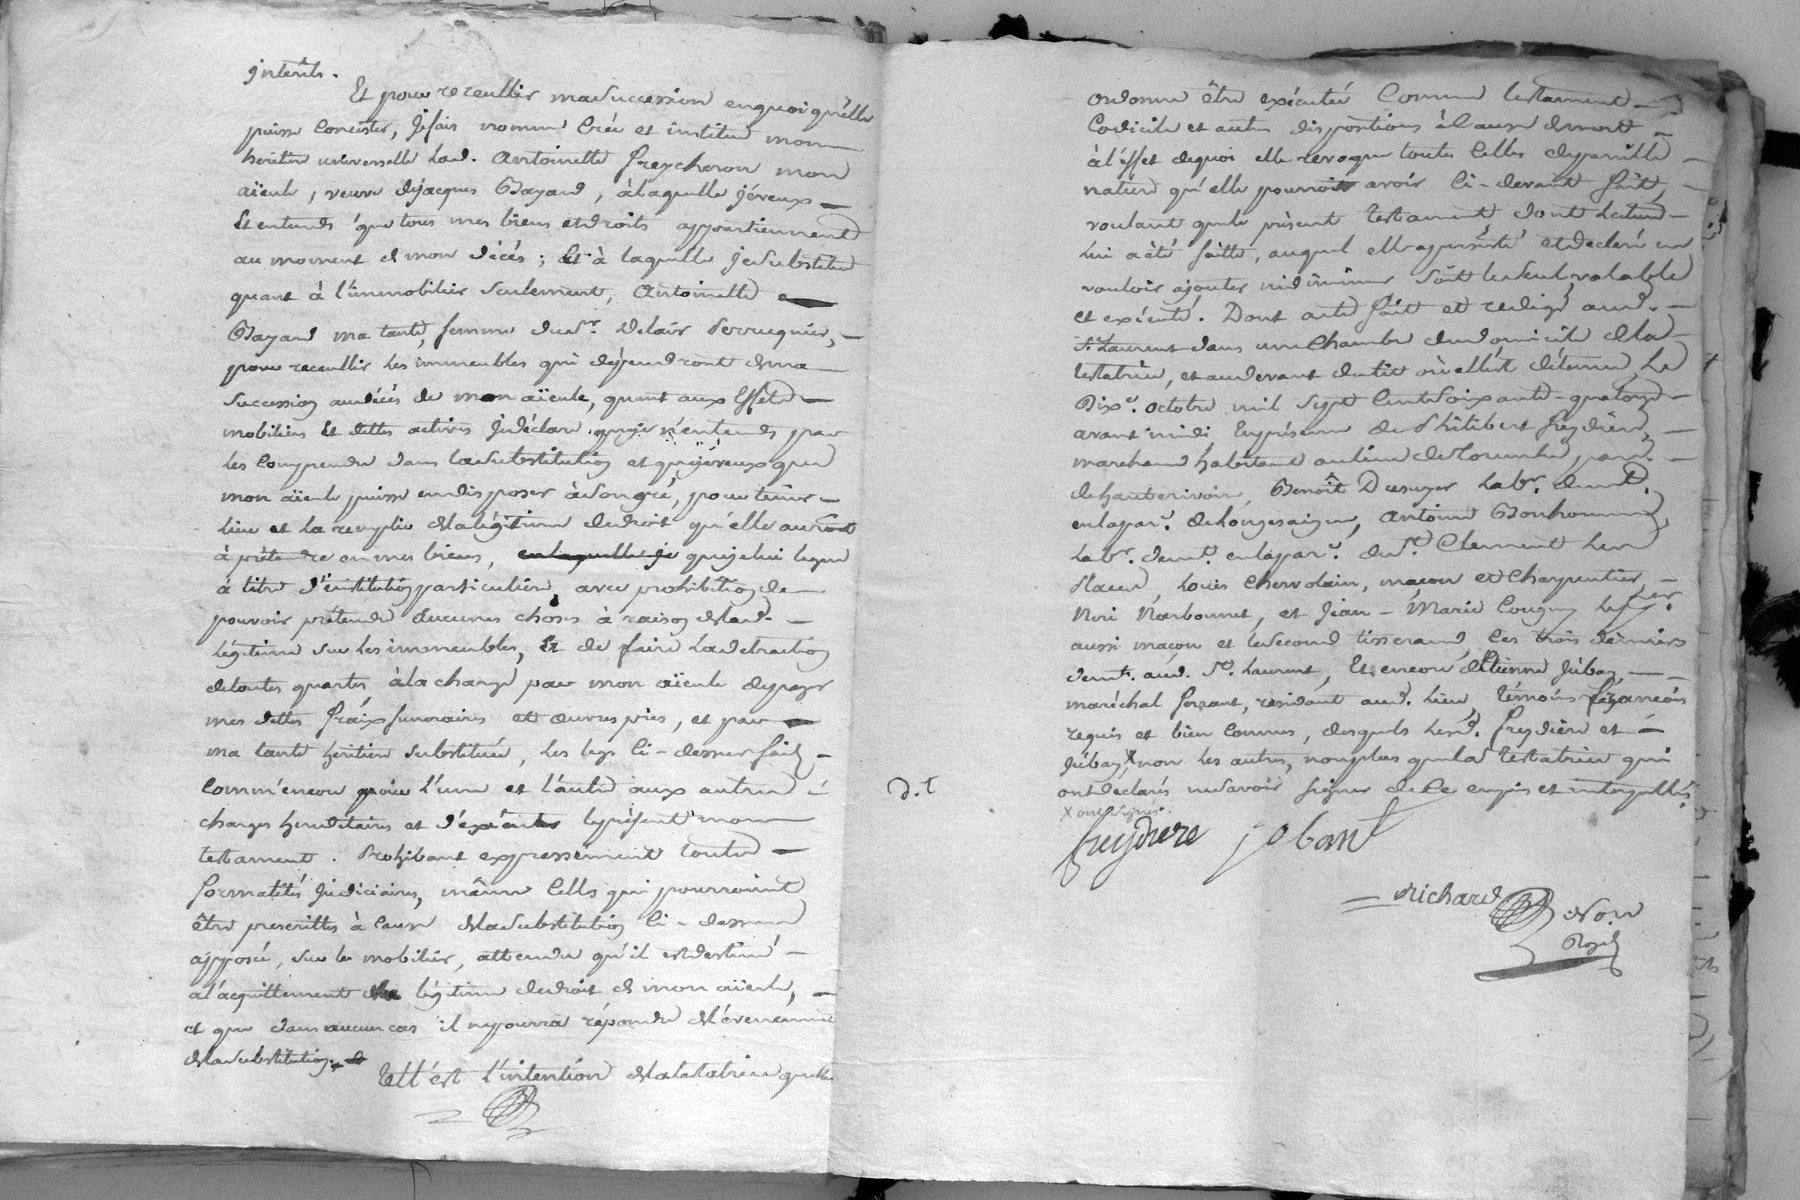 jnterêts.
Et pour receuillir ma succession en quoi qu'elle
puisse consister, Je fais nomme crée et institue mon
heritiere universelle lad. Antoinette freycheron mon
aïeule, veuve de jacques Bayard, à laquelle je veux
Et entends que tous mes biens et droits appartiennent
au moment de mon décés; Et à laquelle je substitue
quant à l'immobilier seulement, Antoinette
Bayard ma tante, femme du sr. Delair Perruquier,
pour receuillir les immeubles qui dépendront de ma
succession au décés de mon aïeule, quant aux Effets
mobiliers Et dettes actives Je déclare que je n'entends pas
les comprendre dans la substitution et que je veux que
mon aïeule puisse en disposer à son gré, pour tenir
lieu et la remplir de la légitime de droit qu'elle auroit
à prétendre en mes biens, en laquelle je que je lui legue
à titre d'institution particuliere, avec prohibition de
pouvoir prétendre aucunes choses à raison de lad.
légitime sur les immeubles, Et de faire la detraction
de toutes quartes, à la charge par mon aïeule de payer
mes dettes fraix funeraires et œuvres pies, et par
ma tante héritiere substituée, les legs ci-dessus faits
comm'encore pour l'une et l'autre aux autres
charges hereditaires et d'executer le présent mon
testament. Prohibant expressement toutes
formalités judiciaires, même celles qui pourroient
être prescrittes à cause de la substitution ci-dessus
apposée, sur le mobilier, attendu qu'il est destiné
a l'acquittement de la légitime de droit de mon aïeule,
et que dans aucun cas il ne pourra répondre de l'évenement
de la substitution.
Tell'est l'intention de la testatrice qu'elle
ordonne être exécutée comme testament
codicile et autres dispositions à cause de mort
à l'effet dequoi elle revoque toutes celles de pareille
nature qu'elle pourroit avoir ci-devant fait,
voulant que le présent testament dont lecture
lui a été faitte, auquel elle a persisté et declaré ne
vouloir ajouter ni diminuer soit le seul valable
et exécuté. Dont acte fait et redigé aud.
St. Laurent dans une chambre du domicile de la
testatrice, et au devant du lit où ell'est détenue, Le
Dixe. octobre mil sept cent soixante-quatorze
avant midi En présence de Philibert freydiere,
marchand habitant au lieu de parr.
de hauterivoire, Benoît Ducruyer labr. demt.
en la parr. de longessaigne, Antoine Bonhomme,
labr. demt. en la parr. de St. Clement les
Places, Louis Chervolain, maçon et charpentier
Nori Narbonnet, et Jean-Marie Cougny le per.
aussi maçon et le second tisserand, les trois derniers
demt. aud. St. Laurent, Et encore d'Etienne Juban,
maréchal ferrant, residant aud. lieu, témoins
requis et bien connus, desquels lesd. freydiere et
Jubanx non les autres, non plus que la testatrice qui
ont declarés ne savoir signer de ce enquis et interpellés.
x ont signé.
D.T
freydiere joban
Richard
Nore
Royal